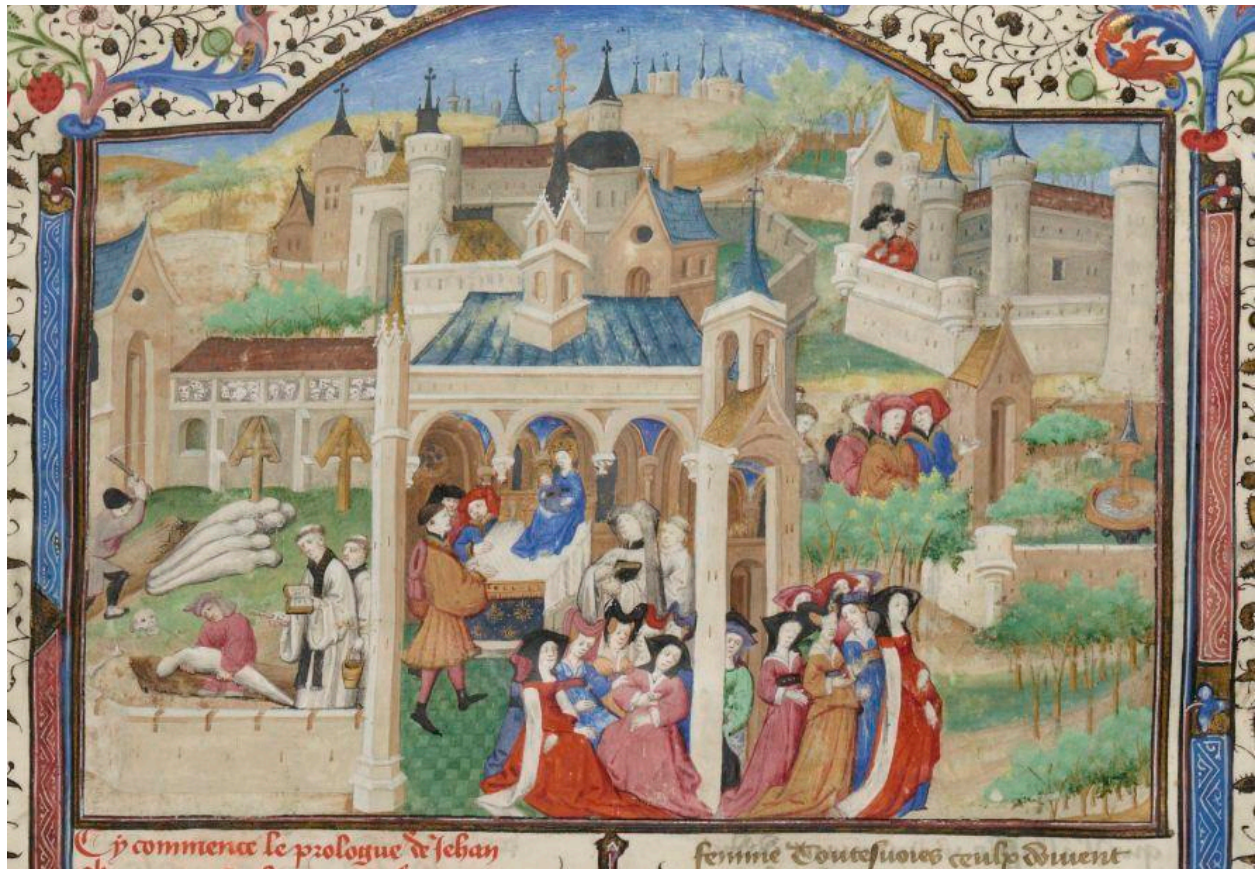 Cy commence le prologue de Jehan
femme Toutesuoies ceulx doiuent